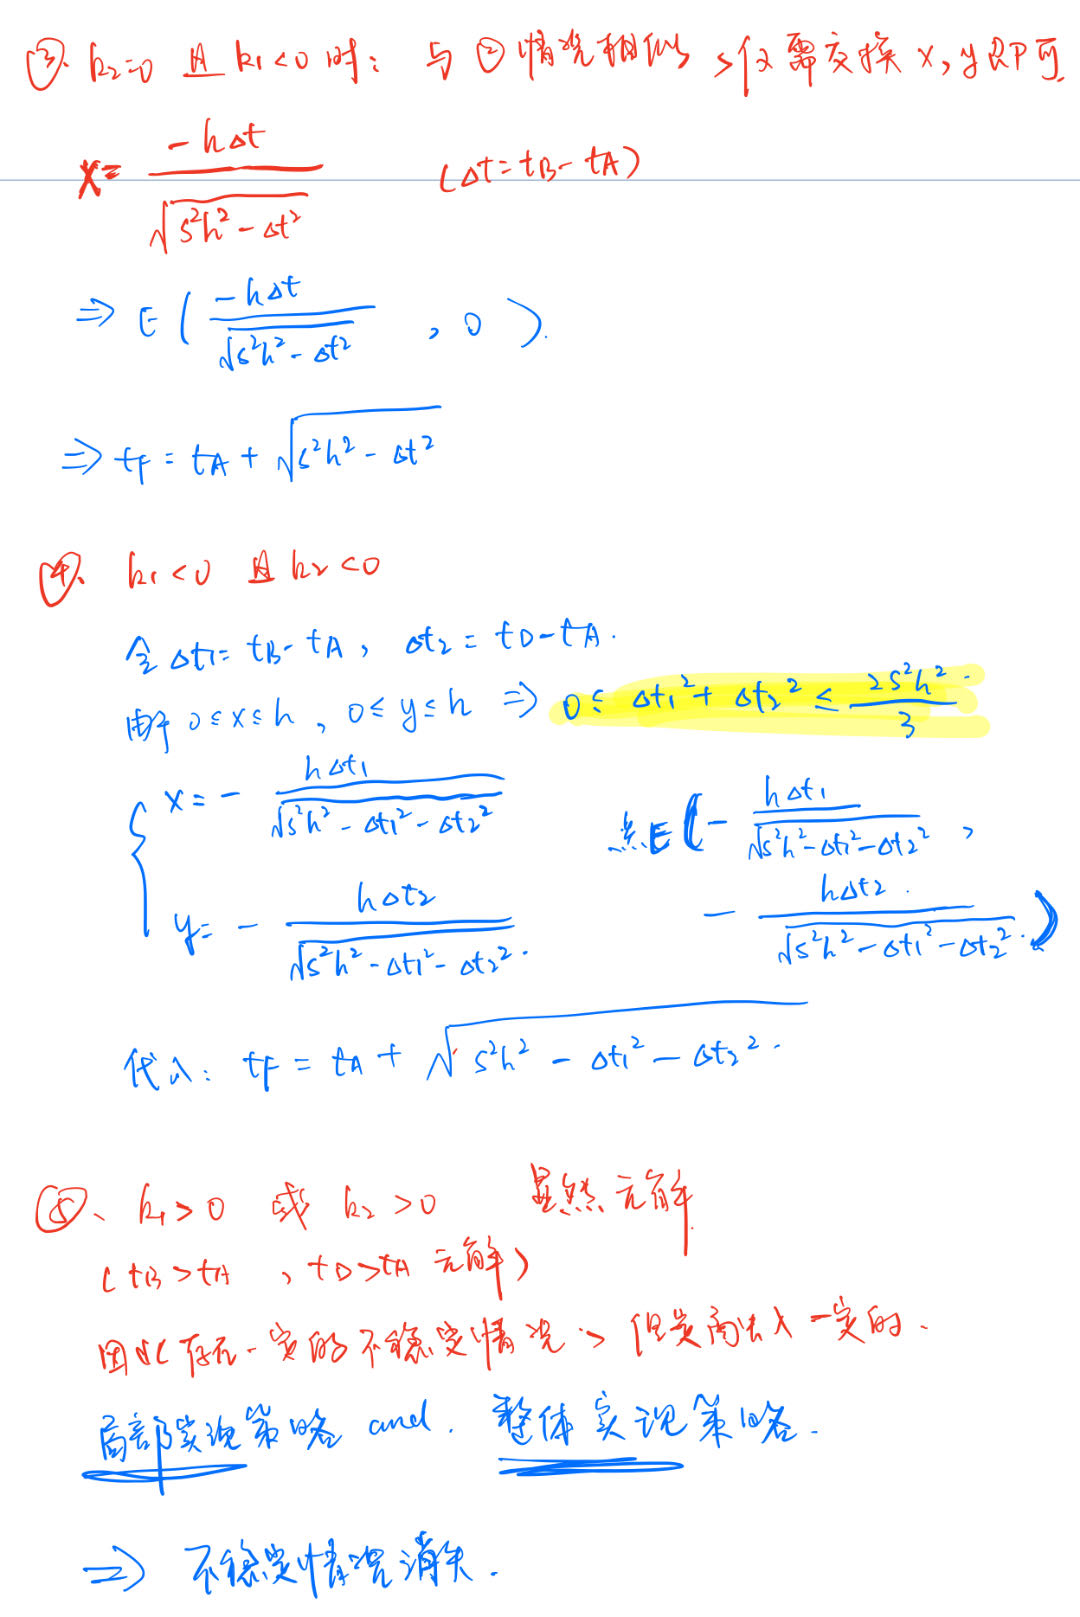 ③、k₂=0 且 k₁<0 时：与②情况相似，仅需交换 x，y即可
x= -hΔt / √(s²h²-Δt²) (Δt=t_B-t_A)
⇒ E( -hΔt / √(s²h²-Δt²) , 0 ).
⇒ t_F = t_A + √(s²h²-Δt²)
④、k₁<0 且 k₂<0
令 Δt₁= t_B-t_A， Δt₂= t_D-t_A.
由于 0≤x≤h， 0≤y≤h ⇒ 0≤ Δt₁²+Δt₂² ≤ 2s²h²/3
{ x= - hΔt₁ / √(s²h²-Δt₁²-Δt₂²) 点E(- hΔt₁ / √(s²h²-Δt₁²-Δt₂²) ,
y= - hΔt₂ / √(s²h²-Δt₁²-Δt₂²). - hΔt₂ / √(s²h²-Δt₁²-Δt₂²).)
代入： t_F = t_A + √(s²h²-Δt₁²-Δt₂²).
⑤、k₁>0 或 k₂>0 显然无解
( t_B>t_A ，t_D>t_A 无解)
因此存在一定的不稳定情况，但 一定的.
局部实现策略 and. 整体实现策略.
⇒ 不稳定情况消失.